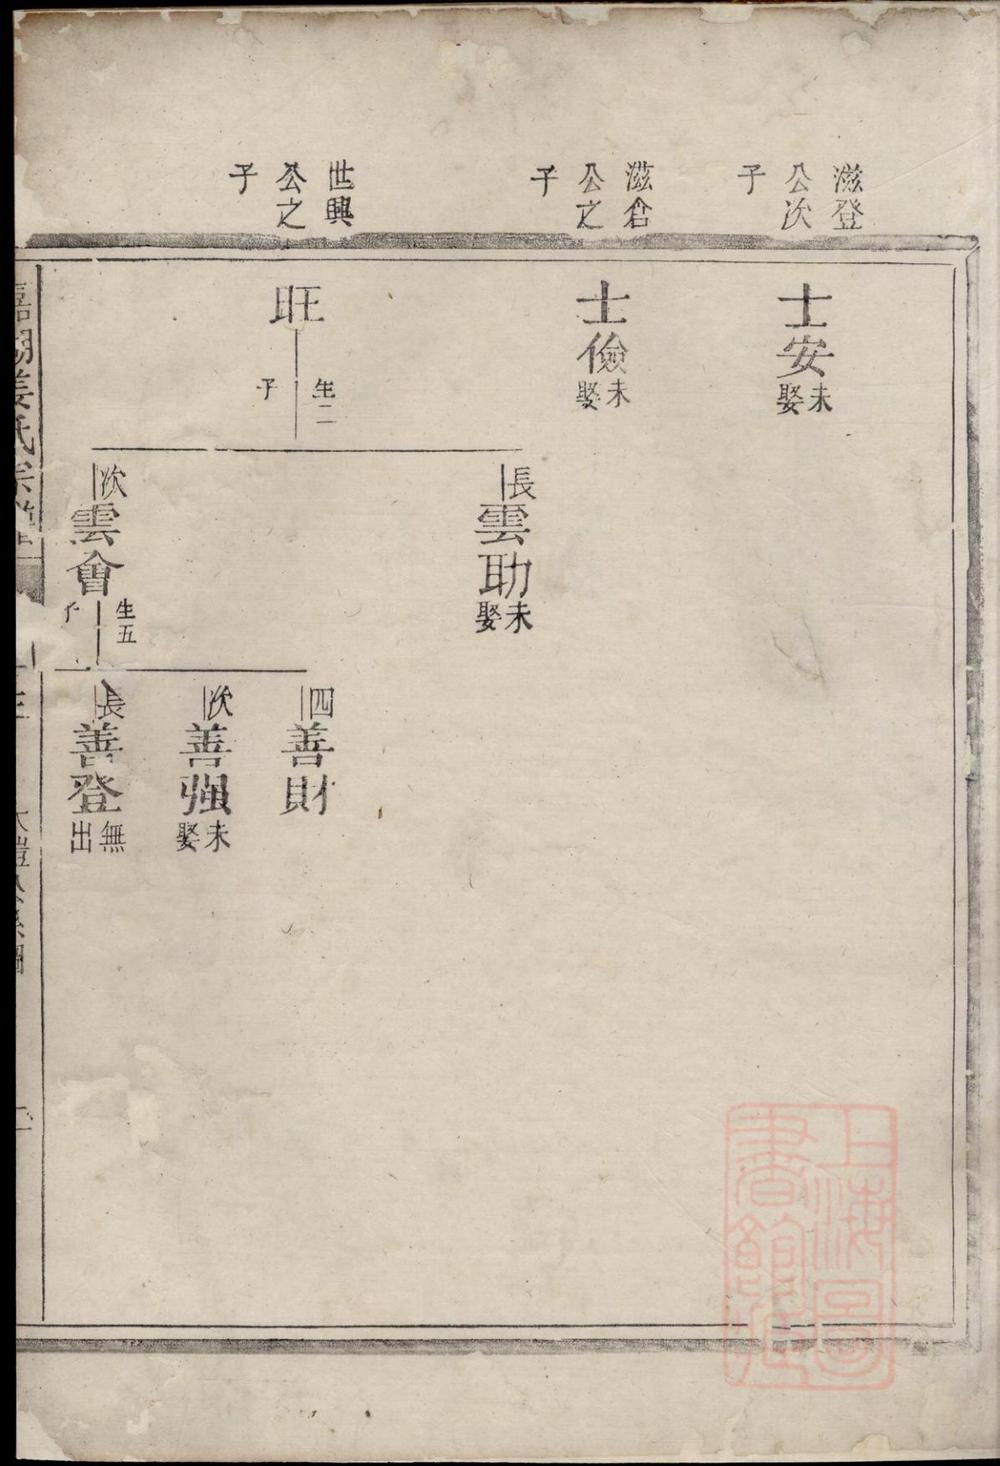 滋登
公次
子
士安
未娶
滋倉
公之
子
士儉
未娶
世興
公之
子
旺
生二
子
長
雲助
未娶
次
雲會
生五
子
四
善財
次
善强
未娶
長
善登
無出
姜氏宗譜
上海圖
書館藏